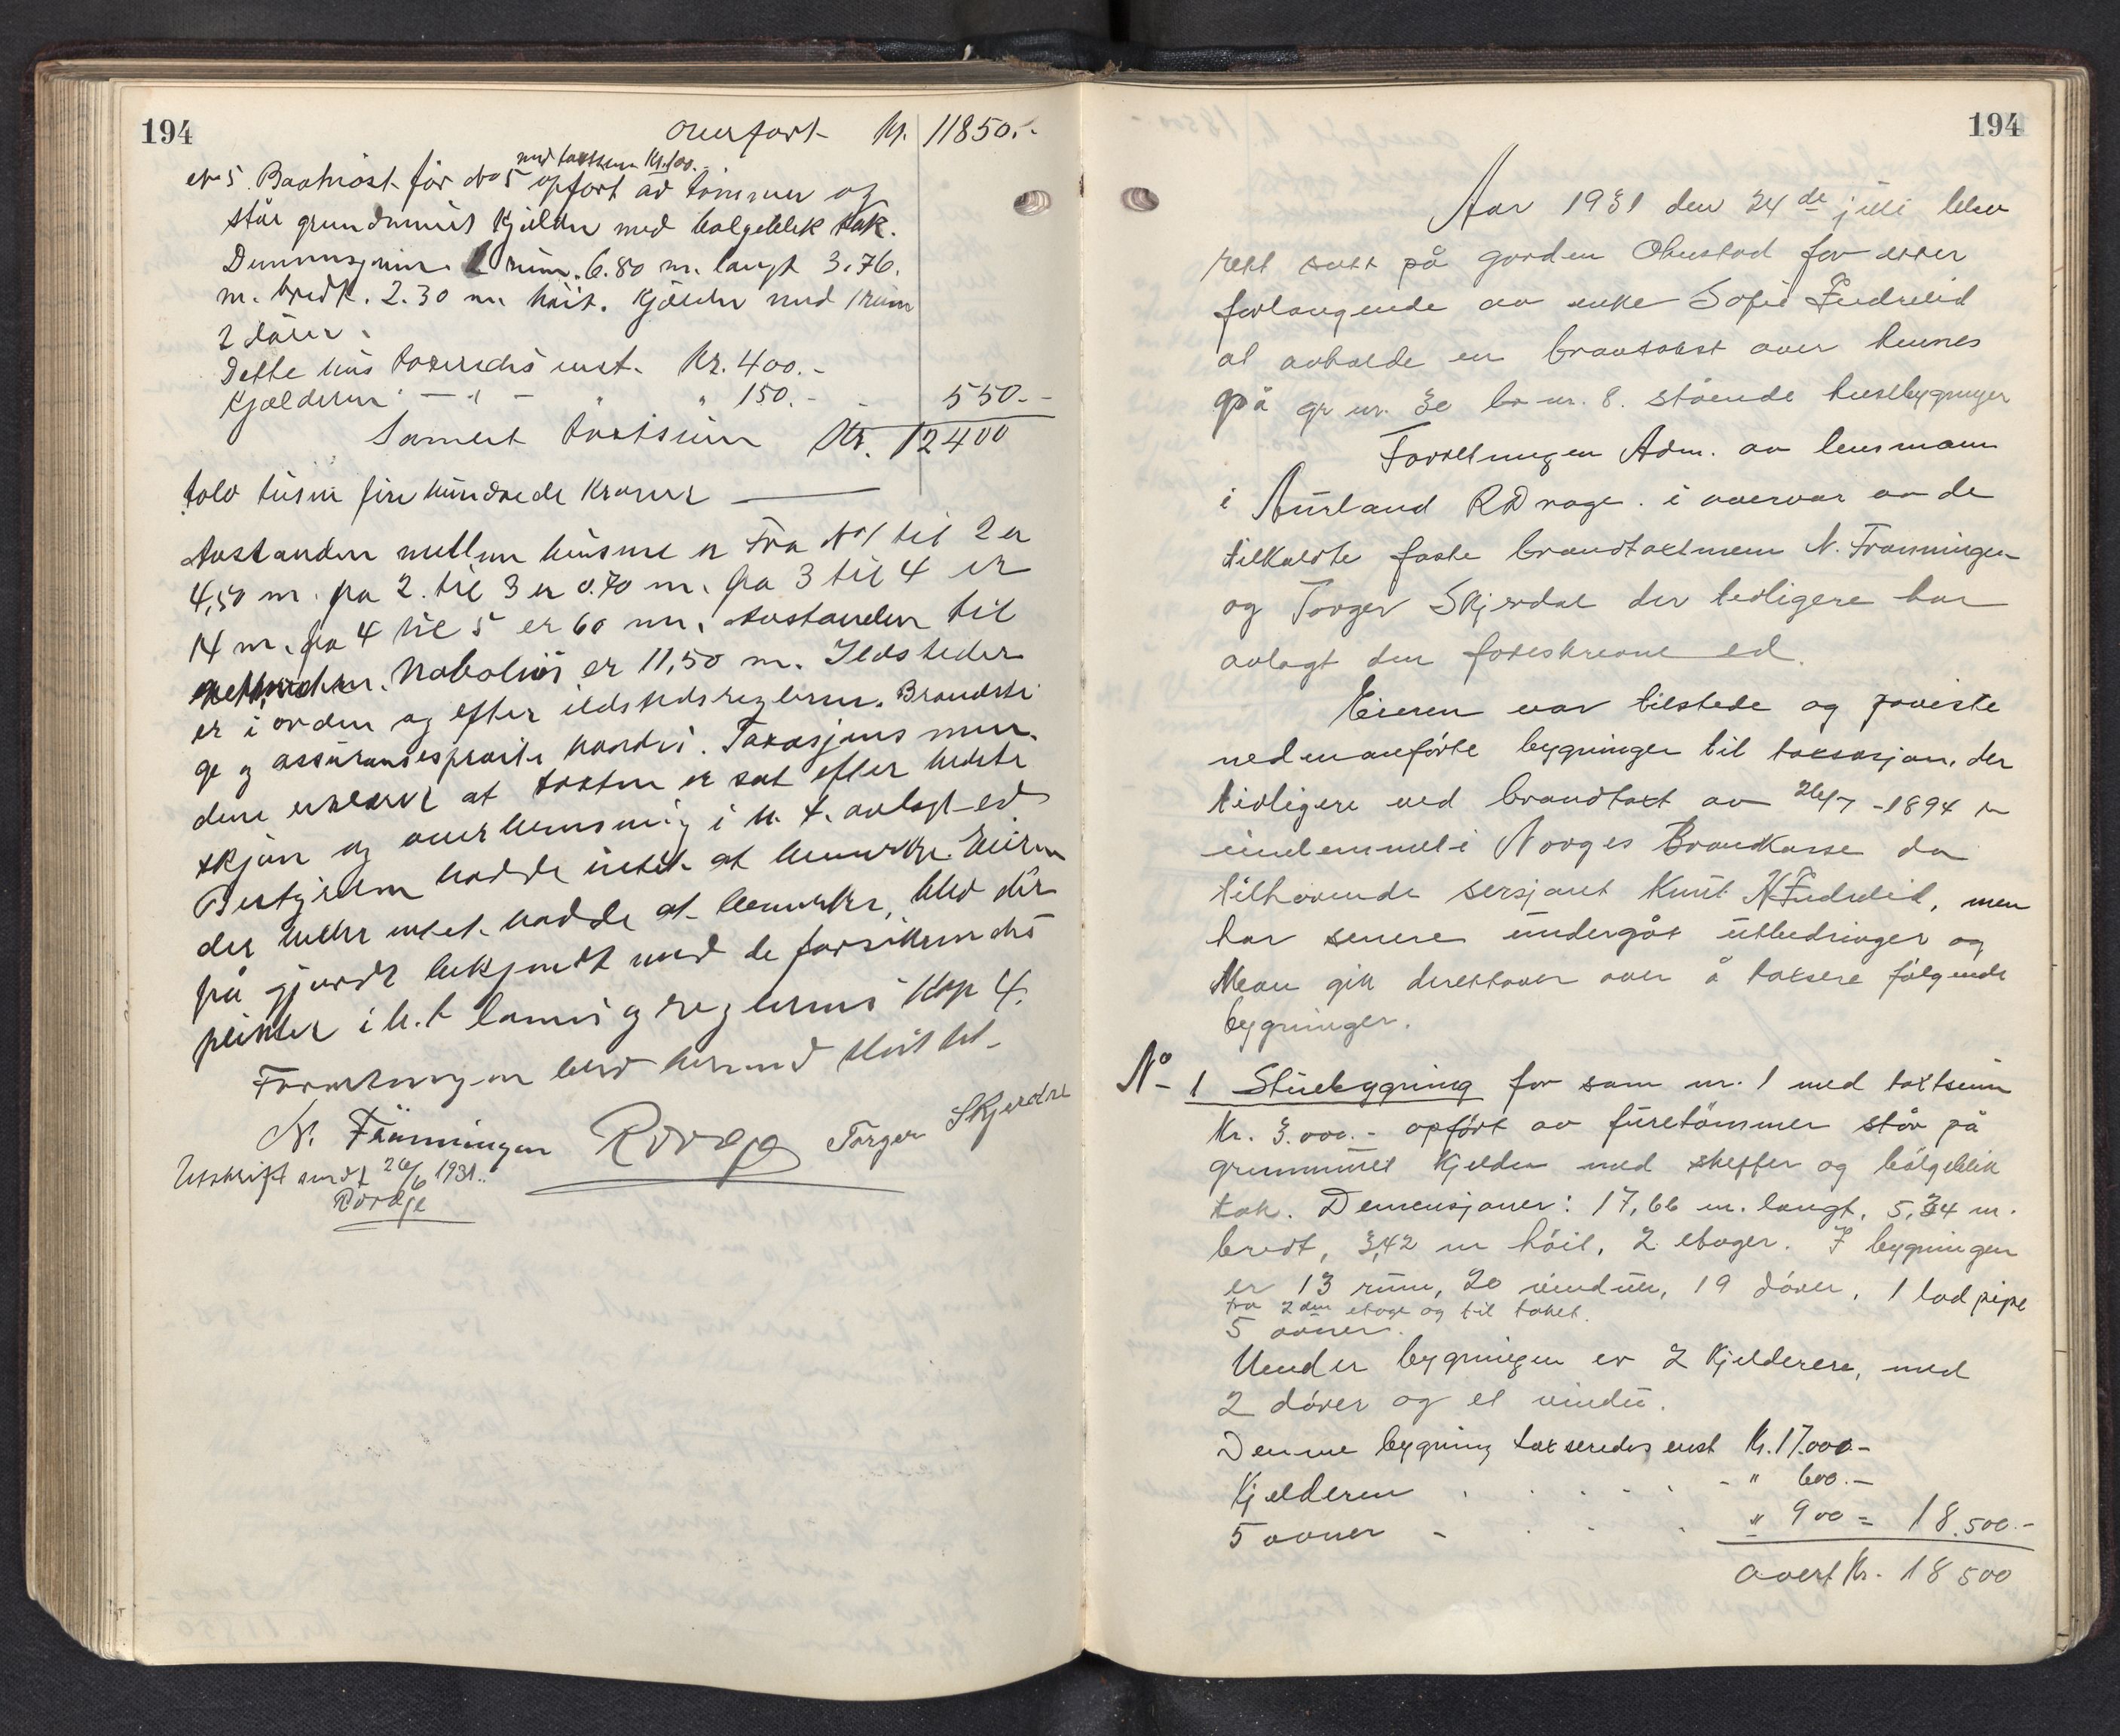 194
overført Kr. 11850.-
med takstsum Kr. 100.-
No 5. Baatnøst før No 5 opført av tømmer og
står grundmuret kjelder med bølgeblik tak.
Dimmensjoner. 1 rum. 6.80 m. langt 3.76.
m. bredt. 2.30 m. høit. Kjelder med 1 rum
2 dører.
Dette hus takseredes enst. Kr. 400.-
Kjælderen — " — " " 150.- - 550.-
Samlet takstsum Kr. 12400
tolv tusen fire hundrede kroner —
Avstanden mellem husene er Fra No 1 til 2 er
4,50 m. fra 2. til 3 er 0.70 m. fra 3 til 4 er
14 m. fra 4 til 5 er 60 m. Avstanden til
nabohus er 11,50 m. Ildsteder
er i orden og efter ildstedsreglerne. Brandsti
ge og assuransesprøite haves. Taksasjons men-
dene erklærer at taksten er sat efter bedste
skjøn og overbevisning i h. t. avlagt ed
Bestyreren hadde intet at bemerke. Eieren
der heller intet hadde at bemerke, blev der
på gjordt bekjendt med de forsikredes
plikter i h. t lovens og reglernes Kap 4.
Forretningen blev hermed sluttet.
N. Frønningen RDrage Torger Skjerdal
Utskrift sendt 26/6 1931..
RDrage
194
Aar 1931 den 24de juli blev
rett satt på garden Ohnstad for etter
forlangende av enke Sofie Fredrelid
at avholde en brantakst over hennes
på gr nr. 30 br nr. 8. stående husebygninger
Forretningen Adm. av lensmann
i Aurland RDrage. i overvær av de
tilkaldte faste brandtakstmenn N. Frønningen
og Torger Skjerdal der tidligere har
avlagt den foreskrevne ed.
Eieren var tilstede og paviste
nedenanførte bygninger til taksasjon, der
tidligere ved brandtakst av 26/7 - 1894 er
indemmelt i Norges Brandkasse da
tilhørende sersjant Knut N Fredrelid, men
har senere undergåt utbedringer og
Man gik derettover over å taksere følgende
bygninger.
No 1 Stuebygning før som nr. 1 med takstsum
Kr. 3.000.- opført av furetømmer står på
grunnmuret kjelder med skeffer og bølgeblik
tak. Demensjoner: 17,66 m. langt, 5,34 m.
bredt, 3,42 m høit, 2 etager. I bygningen
er 13 rum, 20 vinduer, 19 dører, 1 lod pipe
fra 2den etage og til taket.
5 ovner.
Under bygningen er 2 kjelderere, med
2 dører og et vindu.
Denne bygning takseredes enst Kr. 17.000-
Kjelderen . . . . . - " 600.-
5 ovner - . . . " 900 = 18.500.-
overf Kr. 18 500